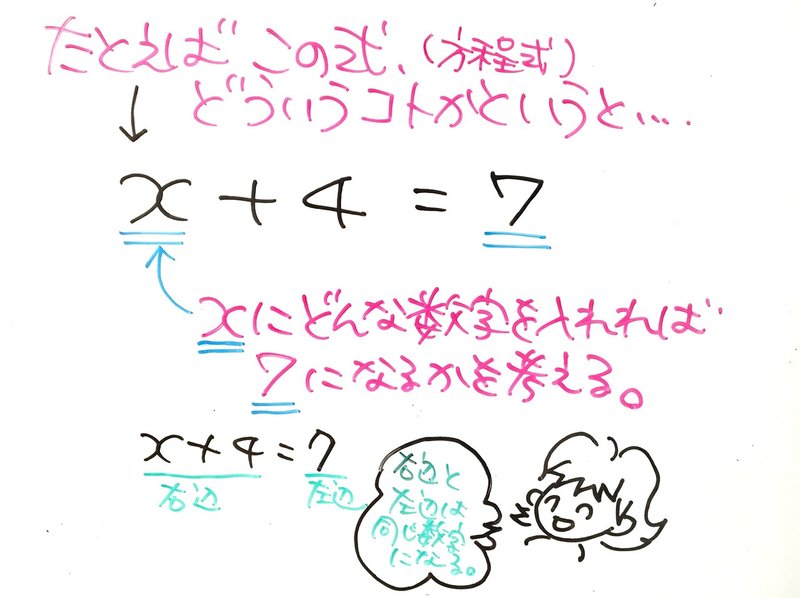 たとえば この式、(方程式)
どういうコトかというと….
x + 4 = 7
xにどんな数字を入れれば
7になるかを考える。
x+4=7
右辺 左辺
右辺と
左辺は
同じ数字
になる。